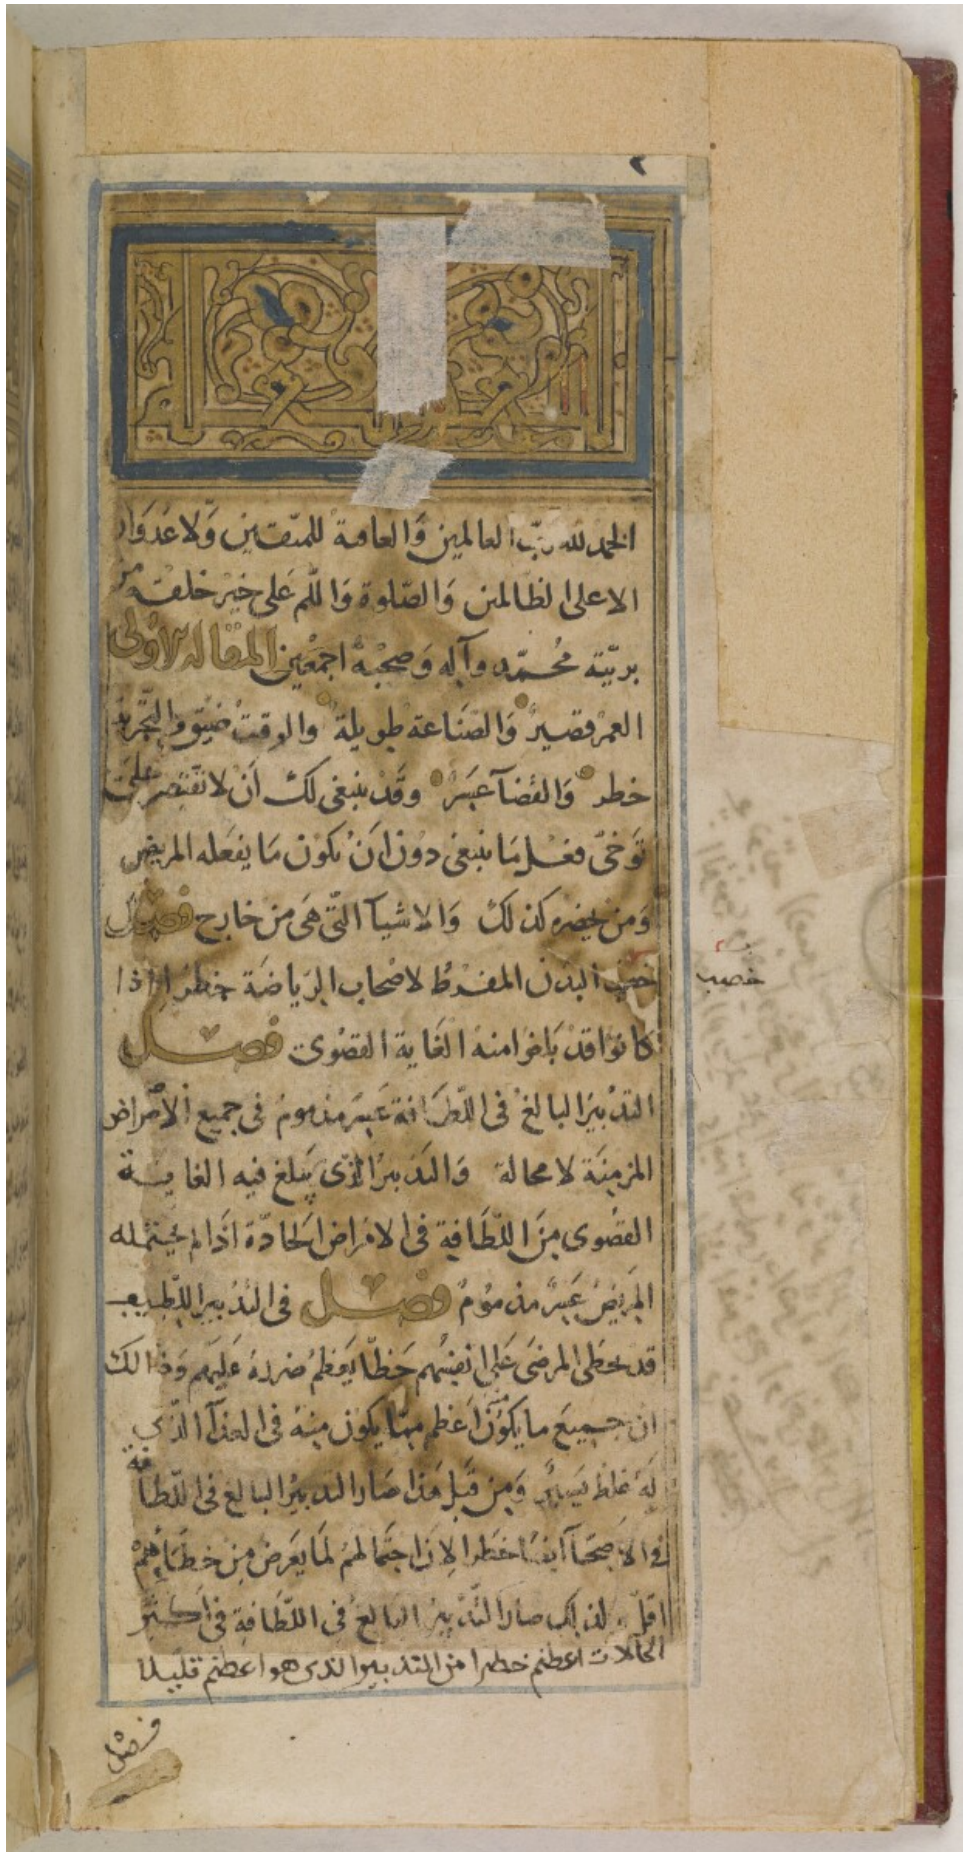 ٢
الحمد لله ربّ العالمين وَالعاقبة للمتقين وَلا عُدوَان
الا على الظالمين وَالصّلوة وَاللّم عَلى خير خلقه من
بريّته محُمّد وآله وَصحبهْ اجمعين المقالة الاولى
العمر قصير وَالصّناعة طويلة والوقت ضيّق والتّجربة
خطر وَالقضآ عَسَرٌ وقَد ينبغى لك اَنْ لا تقتصر على
توَخّى فعل مَا ينبغى دوُن اَنْ يكون مَا يفعَله المريض
وَمن يحضره كذلك وَالاشيآ التّى هَى من خارج فصل
خصب البَدن المفرط لاصْحاب الرّياضَة خطر اذا
كانوُا قدْ بَلغوا منهُ الغَاية القصْوىٰ فصل
التدْبير البالغ فى اللّطَافة عَسِر مذموم فى جميع الاَمْراض
المزمنَة لا محالة وَالتدْبير الّذى يَبلغ فيه الغايـة
القصْوى مِنَ اللّطَافة فى الامْراض الحَادّة اذا لم يحتمله
المَريضُ عَسِرٌ مذموُمٌ فصل فى التدْبير اللّطيف
قد يخطى المرضى عَلى انفسُهم خَطأ يَعظمُ ضررهُ عَليهم وَذالك
ان جميعَ ما يكوُن منه اَعْظم ممّا يكون مِنهُ فى الغذآ الّذى
لَهُ غلظ يَسيرٌ وَمِن قَبل هَذا صَار التدبيرُ البالغ فى اللّطافة
فى الاَصحّآ ايضًا خَطر الا ان احتمَالهمْ لمَا يعَرض مِن خطَأهمْ
اقلّ ولذلك صَار التّدْبيرُ البالغُ فى اللّطَافةِ فى اكثر
الحالات اعظم خطرا من التدبير الذى هو اغلظ قليلا
خصب
فصل